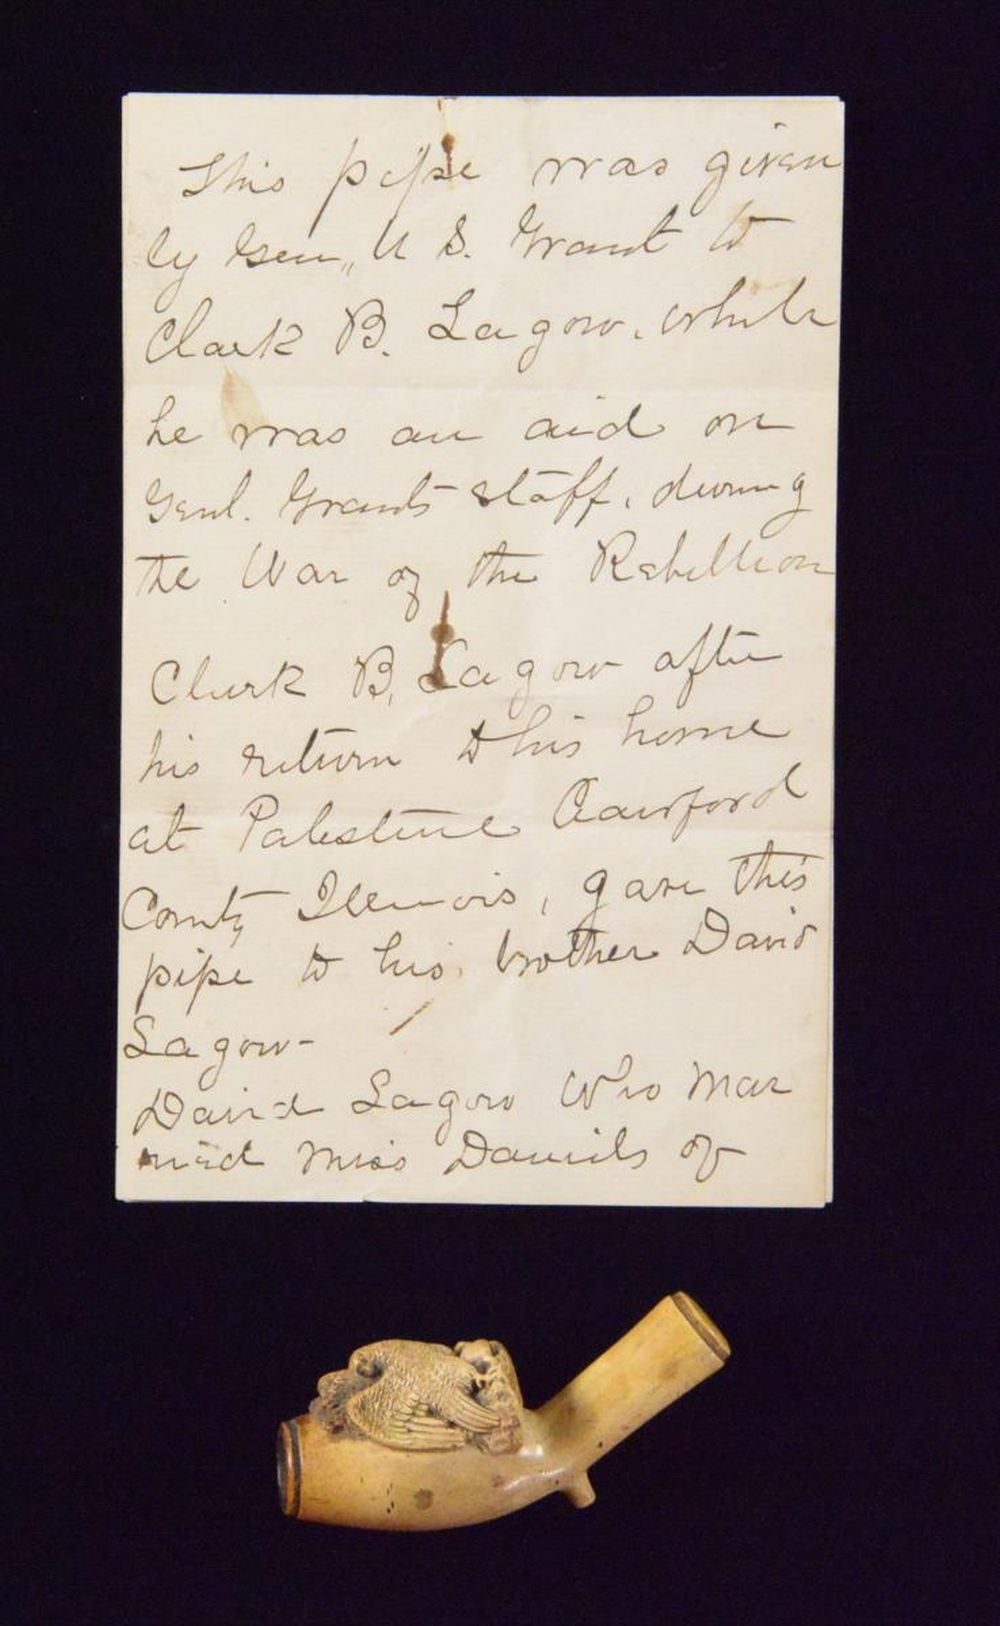 This pipe was given
by Gen,, U S. Grant to
Clark B. Lagow. while
he was an aid on
Genl. Grants staff, during
the War of the Rebellion
Clark B, Lagow after
his return to his home
at Palestine Crawford
County Illinois, gave this
pipe to his brother David
Lagow-
David Lagow Who Mar
ried Miss Daniels of